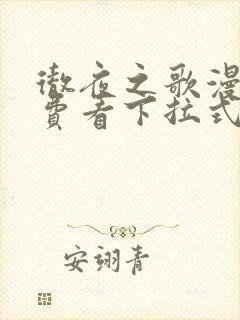 彻夜之歌漫
费看下拉式
安翊青